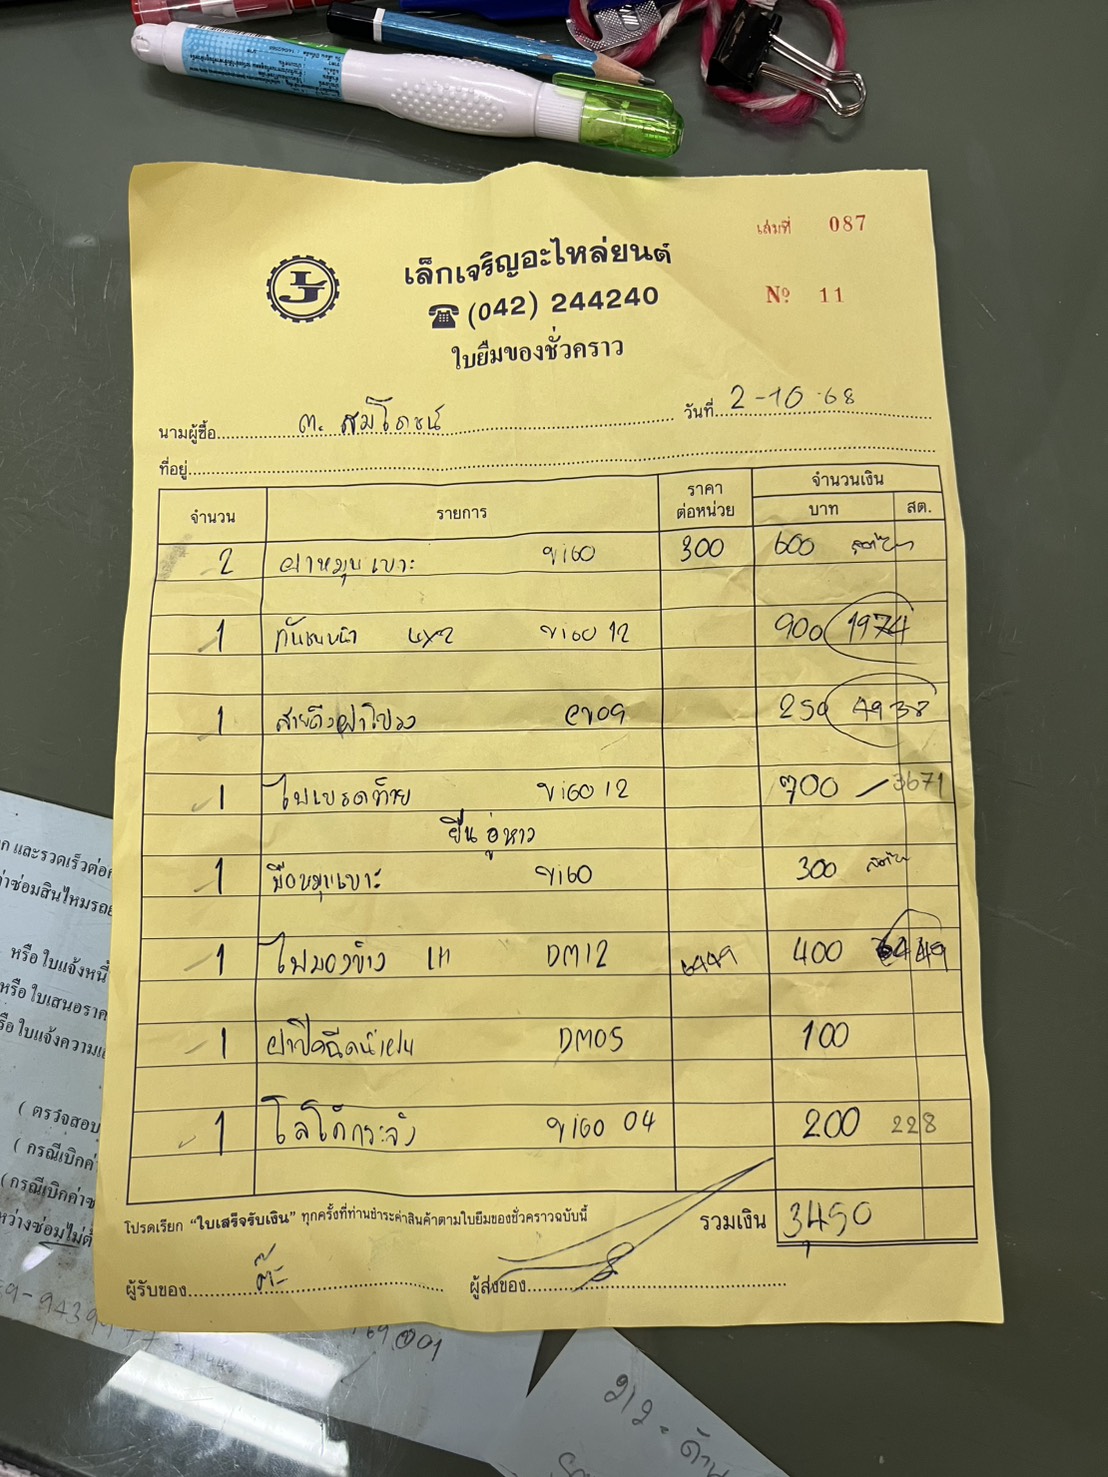 เล่มที่ 087
เล็กเจริญอะไหล่ยนต์
LJ
Nº 11
(042) 244240
ใบยืมของชั่วคราว
นามผู้ซื้อ ต. สมโภชน์ วันที่ 2-10-68
ที่อยู่
จำนวน รายการ ราคาต่อหน่วย จำนวนเงิน
บาท สต.
2 ฝาหมุนเบาะ vigo 300 600
1 กันชนหน้า 4x2 vigo 12 900 1974
1 สายดึงฝาโปรง 250 4938
1 ไฟเบรคท้าย vigo 12 700 3671
ยืน อู่หาว
1 มือหมุนเบาะ vigo 300
1 ไฟมองข้าง DM12 6449 400 6449
1 ฝาปิดฉีดน้ำฝน DM05 100
1 โลโก้กระจัง vigo 04 200 228
โปรดเรียก “ใบเสร็จรับเงิน” ทุกครั้งที่ท่านชำระค่าสินค้าตามใบยืมของชั่วคราวฉบับนี้ รวมเงิน 3,450
ผู้รับของ ต๊ะ ผู้ส่งของ
และรวดเร็วต่อ
ค่าซ่อมสินไหมรถ
หรือ ใบแจ้งหนี้
หรือ ใบเสนอราคา
หรือ ใบแจ้งความ
( ตรวจสอบ
( กรณีเบิกค่า
(กรณีเบิกค่า
ระหว่างซ่อมไม่
212 - ด้าน